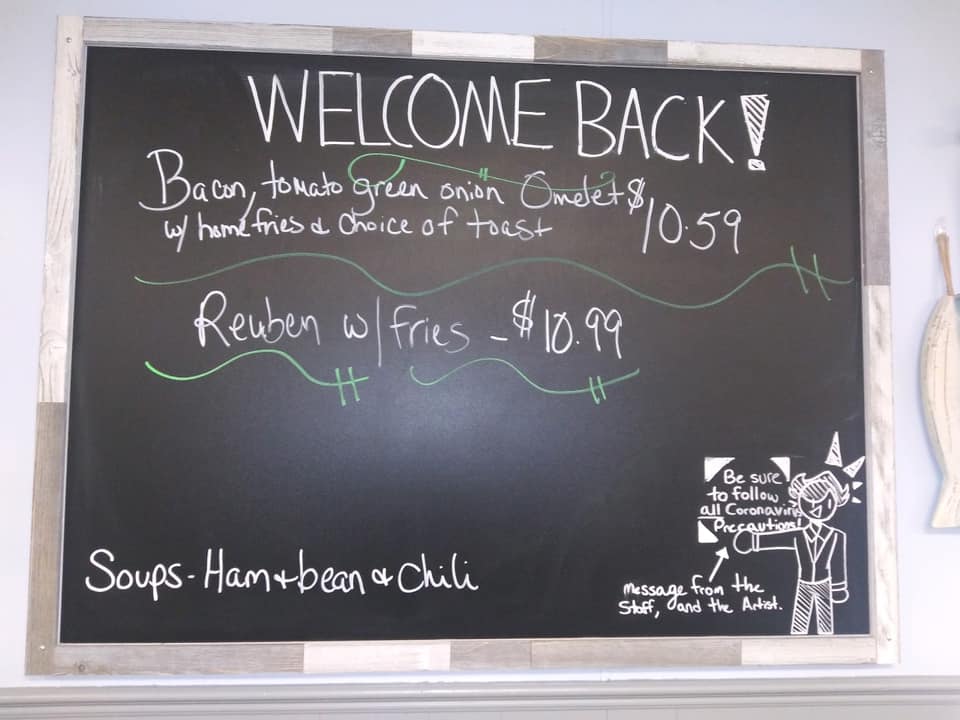 WELCOME BACK!
Bacon, tomato green onion Omelet $10.59
w/ home fries & choice of toast
Reuben w/ fries - $10.99
Soups - Ham + bean & Chili
Be sure
to follow
all Coronavirus
Precautions!
Message from the
Staff, and the Artist.